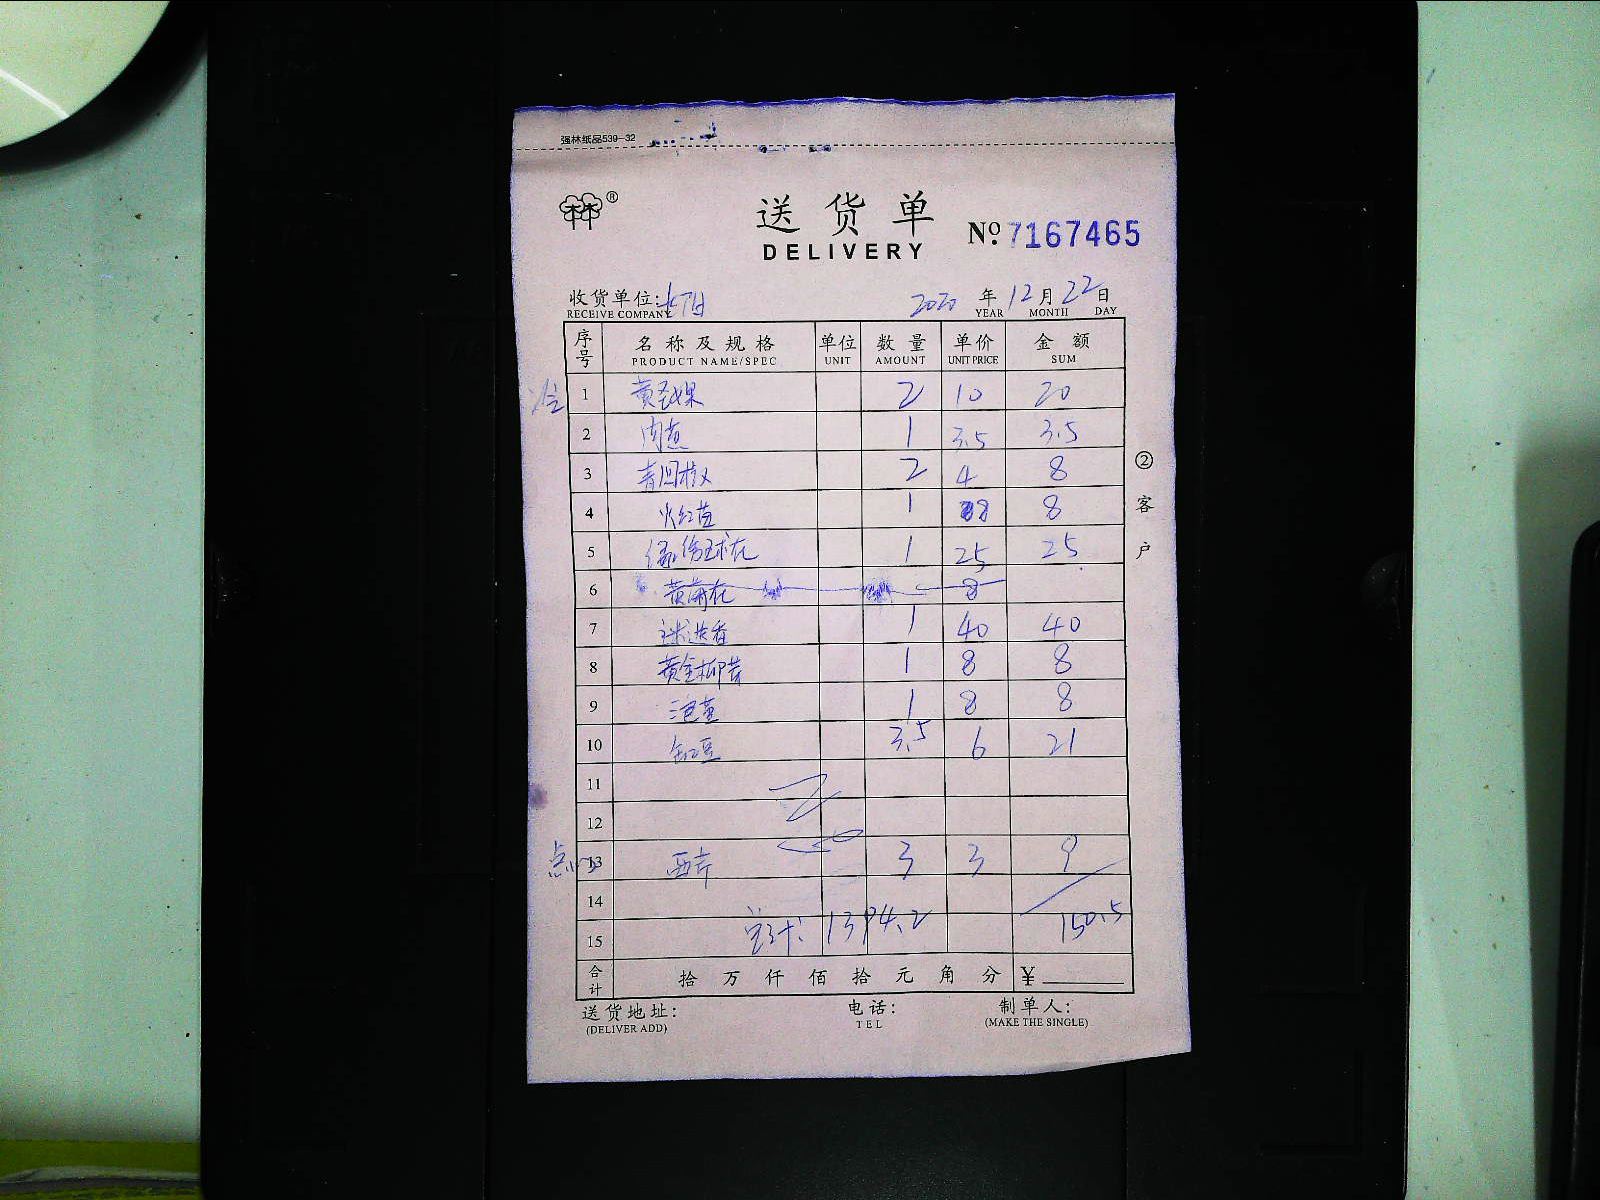 强林纸品539-32
林®
送货单
DELIVERY
No. 7167465
收货单位:
RECEIVE COMPANY
2020 年 12 月 22 日
YEAR MONTH DAY
序号 名称及规格 单位 数量 单价 金额
PRODUCT NAME/SPEC UNIT AMOUNT UNIT PRICE SUM
1 黄圣女果 2 10 20
2 肉葱 1 3.5 3.5
3 青圆椒 2 4 8
4 火红苗 1 8 8
5 1 25 25
6 黄菊花 8
7 1 40 40
8 黄金柳芽 1 8 8
9 泡姜 1 8 8
10 缸豆 3.5 6 21
11
12
点心 13 西芹 3 3 9
14
15 总计: 1394.2 150.5
合计 拾 万 仟 佰 拾 元 角 分 ¥
② 客户
送货地址: 电话: 制单人:
(DELIVER ADD) TEL (MAKE THE SINGLE)